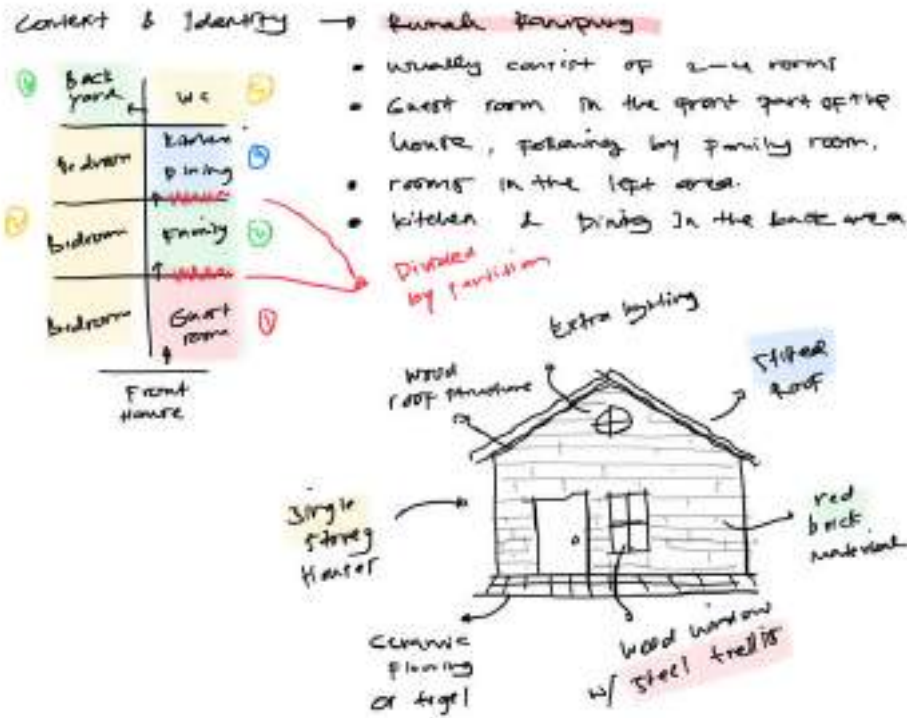 Context & Identity → Rumah Kampung
• usually consist of 2-4 rooms
• Guest room in the front part of the
house, following by family room.
• rooms in the left area.
• kitchen & Dining In the back area
Back
yard
WC
Bedroom
Kitchen
Dining
Bedroom
Family
Bedroom
Guest
room
1
Front
House
Divided
by partition
Extra lighting
Wood
roof structure
roof
Single
storey
Houses
red
brick
material
Ceramic
flooring
or tegel
Wood window
w/ steel trellis